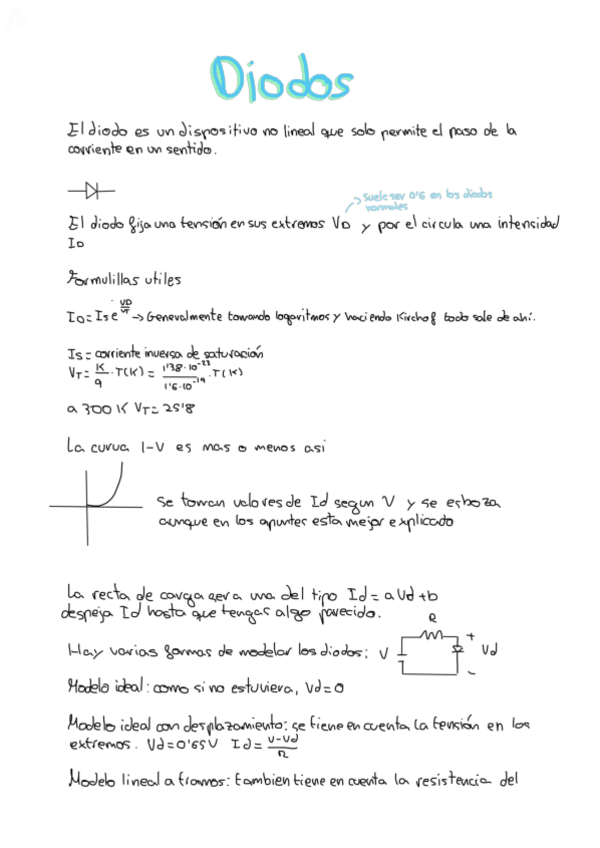 Diodos
El diodo es un dispositivo no lineal que solo permite el paso de la
corriente en un sentido.
Suele ser 0'6 en los diodos
normales
El diodo fija una tensión en sus extremos VD y por el circula una intensidad
ID
Formulillas utiles
ID = Is e^(VD/VT) → Generalmente tomando logaritmos y haciendo Kirchof todo sale de ahí.
Is = corriente inversa de saturación
VT = K/q · T(K) = 1'38·10^-23/1'6·10^-19 · T(K)
a 300 K VT = 25'8
La curva I-V es mas o menos asi
Se toman valores de Id segun V y se esboza
aunque en los apuntes esta mejor explicado
La recta de carga sera una del tipo Id = aVd + b
despeja Id hasta que tengas algo parecido.
R
Hay varias formas de modelar los diodos: V + Vd -
Modelo ideal: como si no estuviera, Vd = 0
Modelo ideal con desplazamiento: se tiene en cuenta la tensión en los
extremos. Vd = 0'65V Id = V-Vd/R
Modelo lineal a tramos: tambien tiene en cuenta la resistencia del